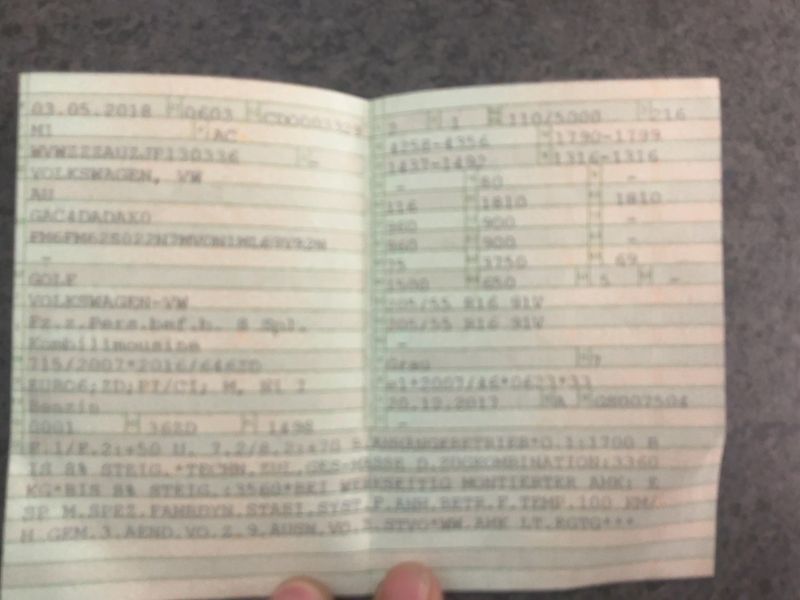 03.05.2018 0603
M1 AC
VOLKSWAGEN, VW
AU
GOLF
VOLKSWAGEN-VW
Fz.z.Pers.bef.b. 8 Spl.
Kombilimousine
715/2007*2016/646ZD
EURO6;ZD;PI/CI; M, N1 I
Benzin
0001 36ZD 1498
2 1 110/5000 216
4258-4356 1790-1799
1437-1492 1316-1316
- 80 -
116 1810 1810
960 900 -
860 900 -
75 3750 69
1500 650 5 -
205/55 R16 91V
205/55 R16 91V
-
Grau 7
20.12.2017 A
-
F.1/F.2:+50 U. 7.2/8.2:+70 B.ANHÄNGEBETRIEB*O.1:1700 B
IS 8% STEIG.*TECHN.ZUL.GES-MASSE D.ZUGKOMBINATION:3360
KG*BIS 8% STEIG.:3560*BEI WERKSEITIG MONTIERTER AHK: E
SP M.SPEZ.FAHRDYN.STABI.SYST.F.ANH.BETR.F.TEMP.100 KM/
H GEM.3.AEND.VO.Z.9.AUSN.VO.Z.STVO*WW.AHK LT.EGTG***